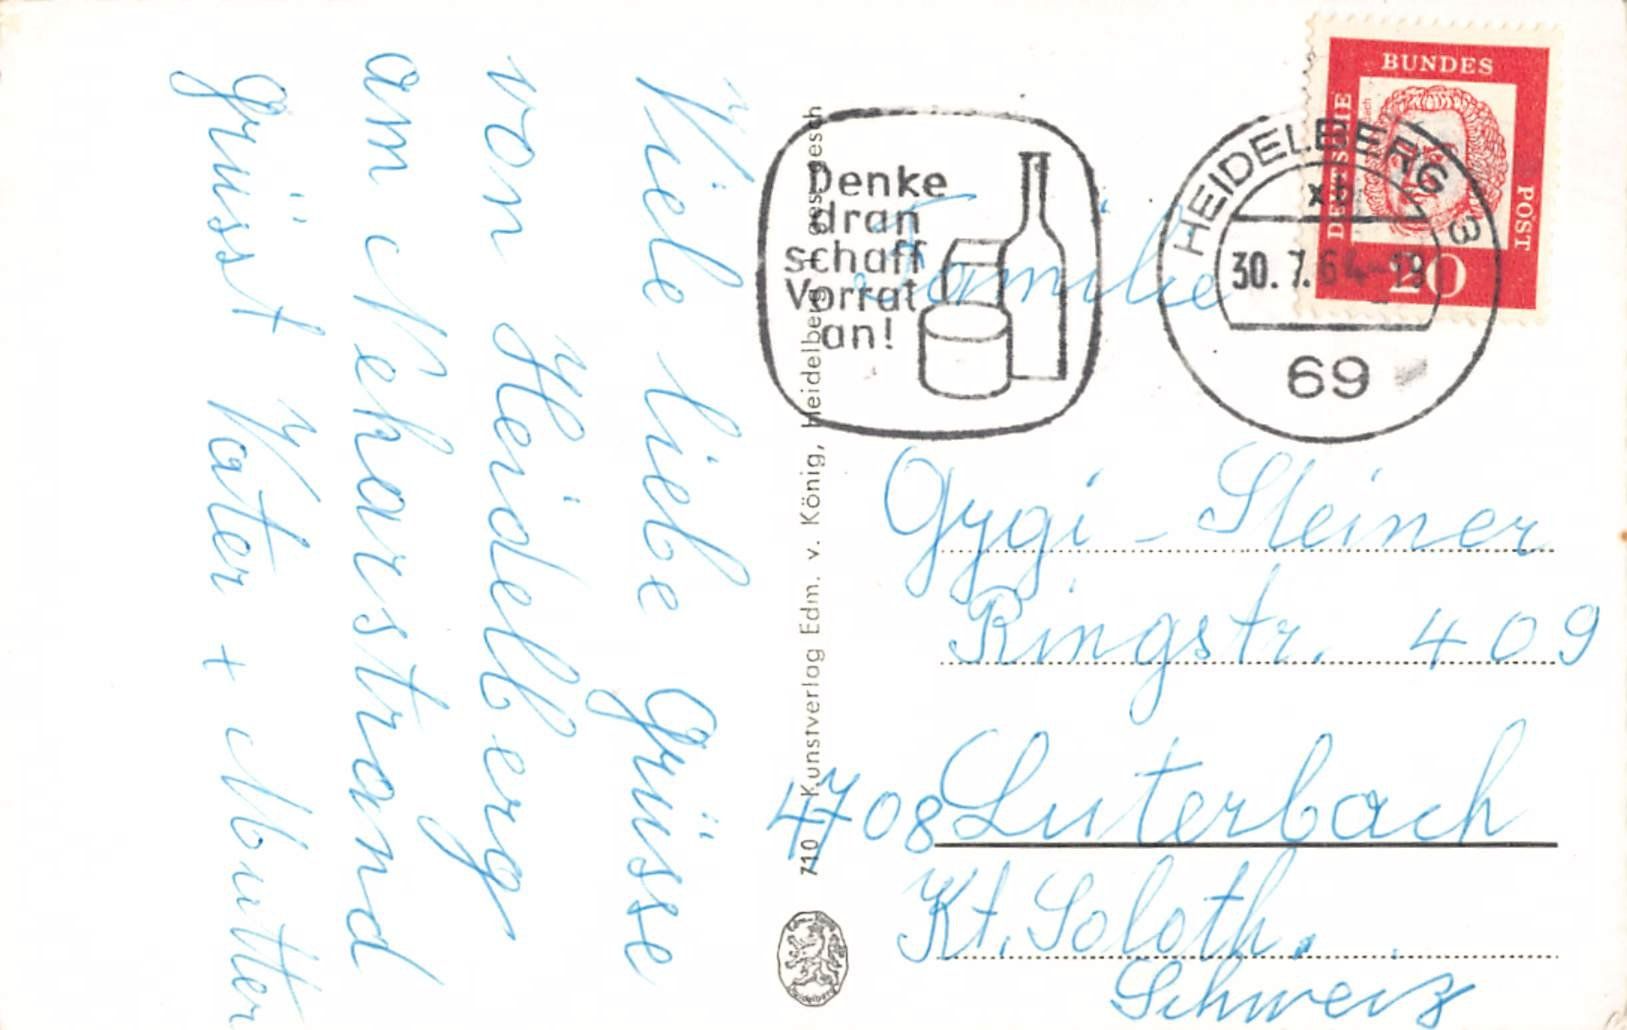 Viele liebe Grüsse
von Heidelberg
am Nekarstrand
grüsst Vater + Mutter
710 Kunstverlag Edm. v. König, Heidelberg
Denke
dran
schaff
Vorrat
an!
HEIDELBERG 3
xb
30.7.64-18
69
DEUTSCHE
BUNDES
POST
20
Familie
Gygi-Steiner
Ringstr. 409
4708 Luterbach
Kt. Soloth.
Schweiz
Heidelberg